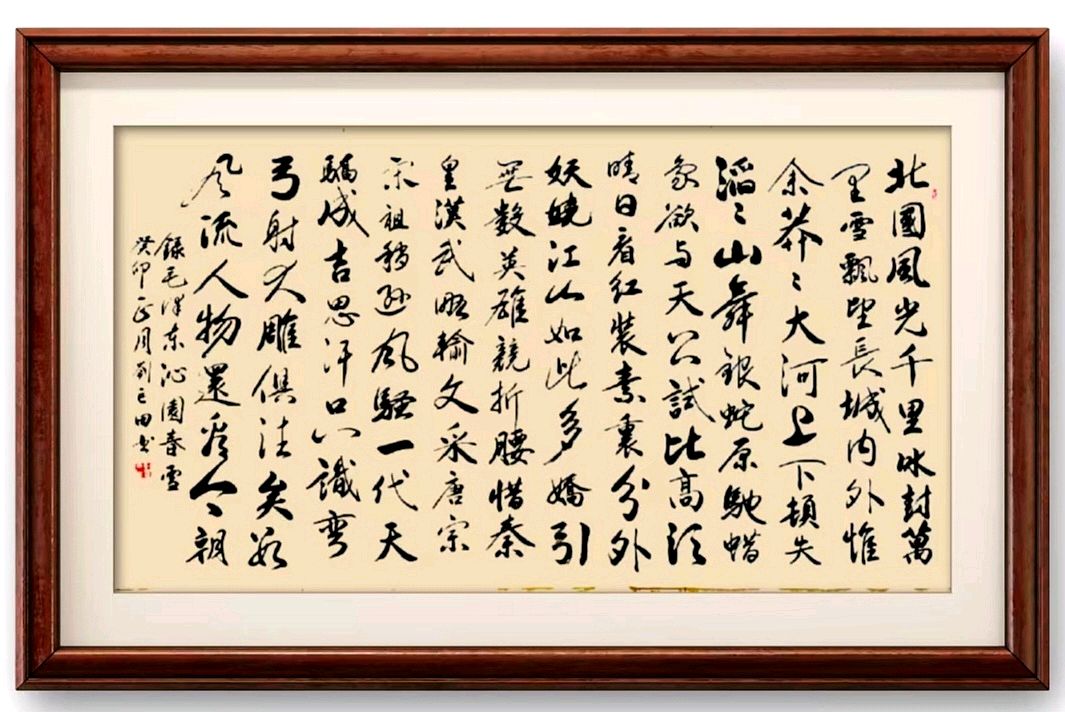 北國風光千里冰封萬
里雪飄望長城内外惟
余莽〻大河上下頓失
滔〻山舞銀蛇原馳蜡
象欲与天公試比高须
晴日看红装素裹分外
妖娆江山如此多嬌引
無数英雄競折腰惜秦
皇漢武略输文采唐宗
宋祖稍逊风騷一代天
驕成吉思汗只識弯
弓射大雕俱往矣数
风流人物還看今朝
録毛泽东沁園春雪
癸卯正月刘田书